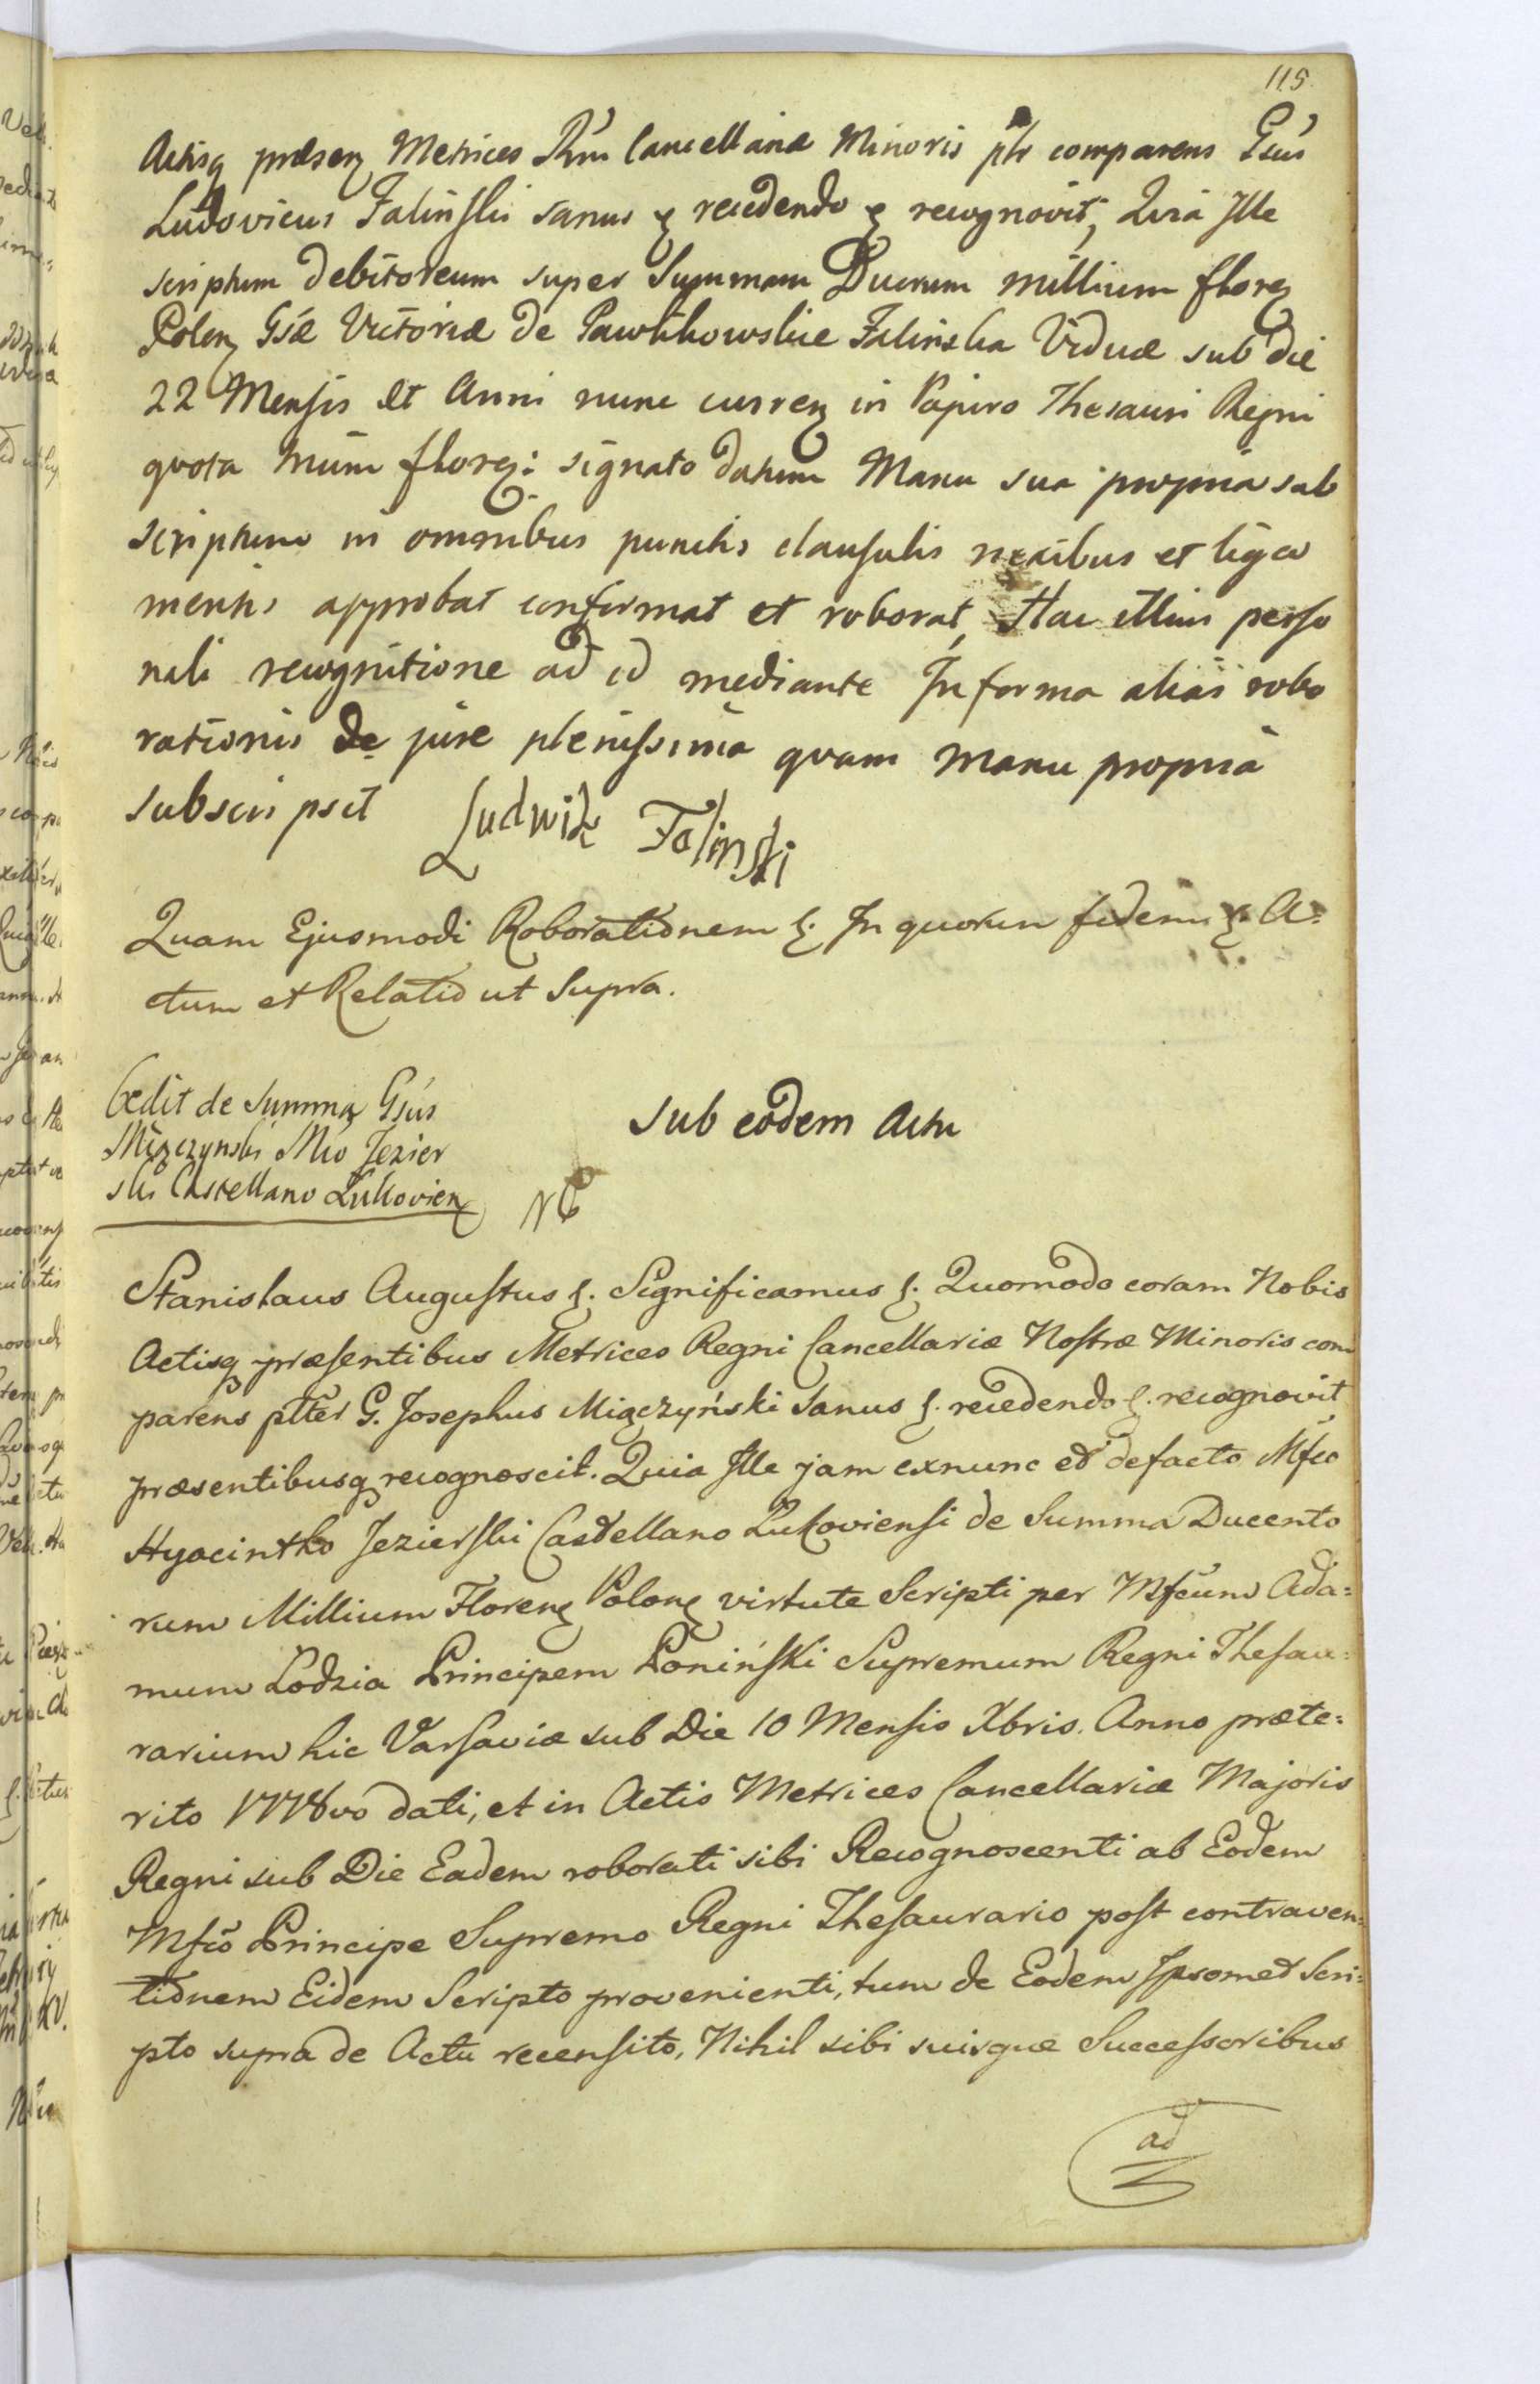 115
Actisq præsenz Metrices Rni Cancellariæ Minoris ptr comparens Gsus
Ludovicus Falinski sanus ę recedendo ę recognovit, Quia Ille
scriptum debitoreum super Summam Duorum millium florez
Polonz Gsæ Victoriæ de Pawlikowskie Falinska Viduæ sub die
22 Mensis et Anni nunc currenz in Papiro Thesauri Regni
quota mum florez: signato datum Manu sua propria sub
scriptum in omnibus punctis clausulis nexibus et liga
mentis approbat confirmat et roborat, Hac illius perso
nali recognitione ad id mediante In forma alias robo
rationis de jure plenissima quam manu propria
subscripsit Ludwik Falinski
Quam Ejusmodi Roborationem ę. In quorum fidem ę. A=
ctum et Relatio ut Supra.
Cedit de Summa Gsus
Miączynski Mco Jezier
ski Castellano Lukovienz
Sub eodem Actu
Stanislaus Augustus ę. Significamus ę. Quomodo coram Nobis
Actisq præsentibus Metrices Regni Cancellariæ Nostræ Minoris com
parens ptter G. Josephus Miączyński sanus ę. recedendo ę. recognovit
præsentibusq recognoscit. Quia Ille jam exnunc et defacto Mfco
Hyacintho Jezierski Castellano Lukoviensi de Summa Ducento
rum Millium Florenz Polonz virtute Scripti per Mfcum Ada=
mum Lodzia Principem Poniński Supremum Regni Thesau=
rarium hic Varsaviæ sub Die 10 Mensis Xbris. Anno præte=
rito 1778vo dati, et in Actis Metrices Cancellariæ Majoris
Regni sub Die Eadem roborati sibi Recognoscenti ab Eodem
Mfco Principe Supremo Regni Thesaurario post contraven=
tionem Eidem Scripto provenienti, tum de Eodem Ipsomet Scri=
pto supra de Actu recensito, Nihil sibi suisque Successoribus
ad